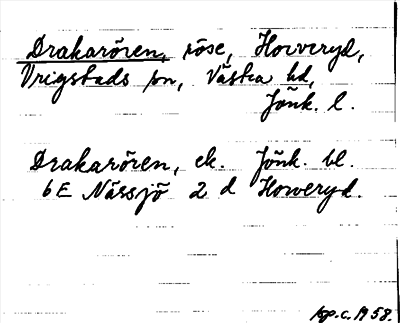 Drakarören, röse, Hoveryd,
Vrigstads sn, Västra hd,
Jönk. l.
Drakarören, ek. Jönk. bl.
6E Nässjö 2 d Hoveryd.
kp.c. 1958.